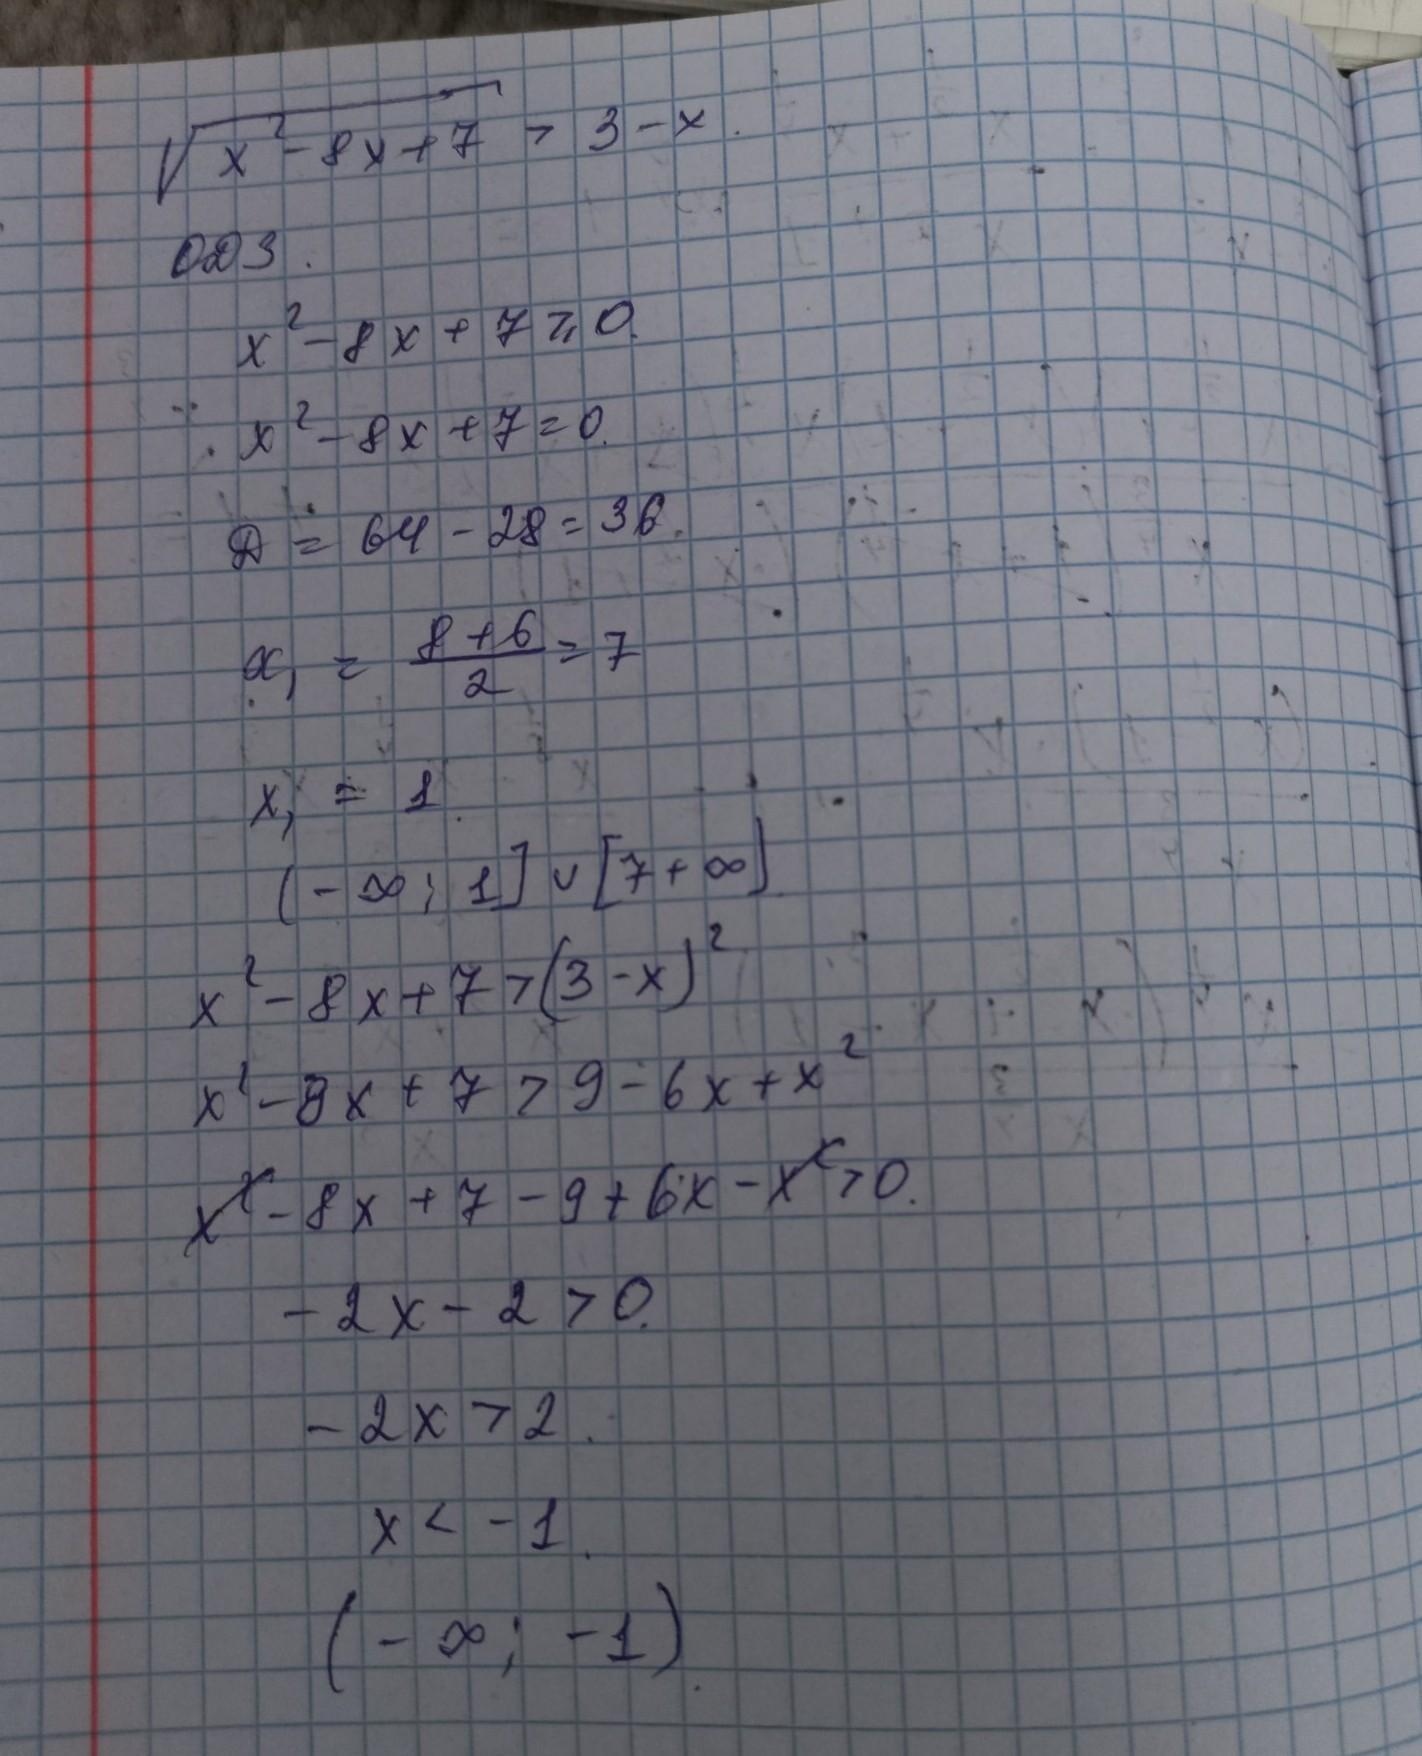 √(x² - 8x + 7) > 3 - x.
ОДЗ.
x² - 8x + 7 ≥ 0.
x² - 8x + 7 = 0.
Д = 64 - 28 = 36.
x₁ = (8 + 6)/2 = 7
x₁ = 1.
(- ∞; 1] ∪ [7 + ∞]
x² - 8x + 7 > (3 - x)²
x² - 8x + 7 > 9 - 6x + x²
x² - 8x + 7 - 9 + 6x - x² > 0.
- 2x - 2 > 0.
- 2x > 2.
x < - 1.
(- ∞; - 1).